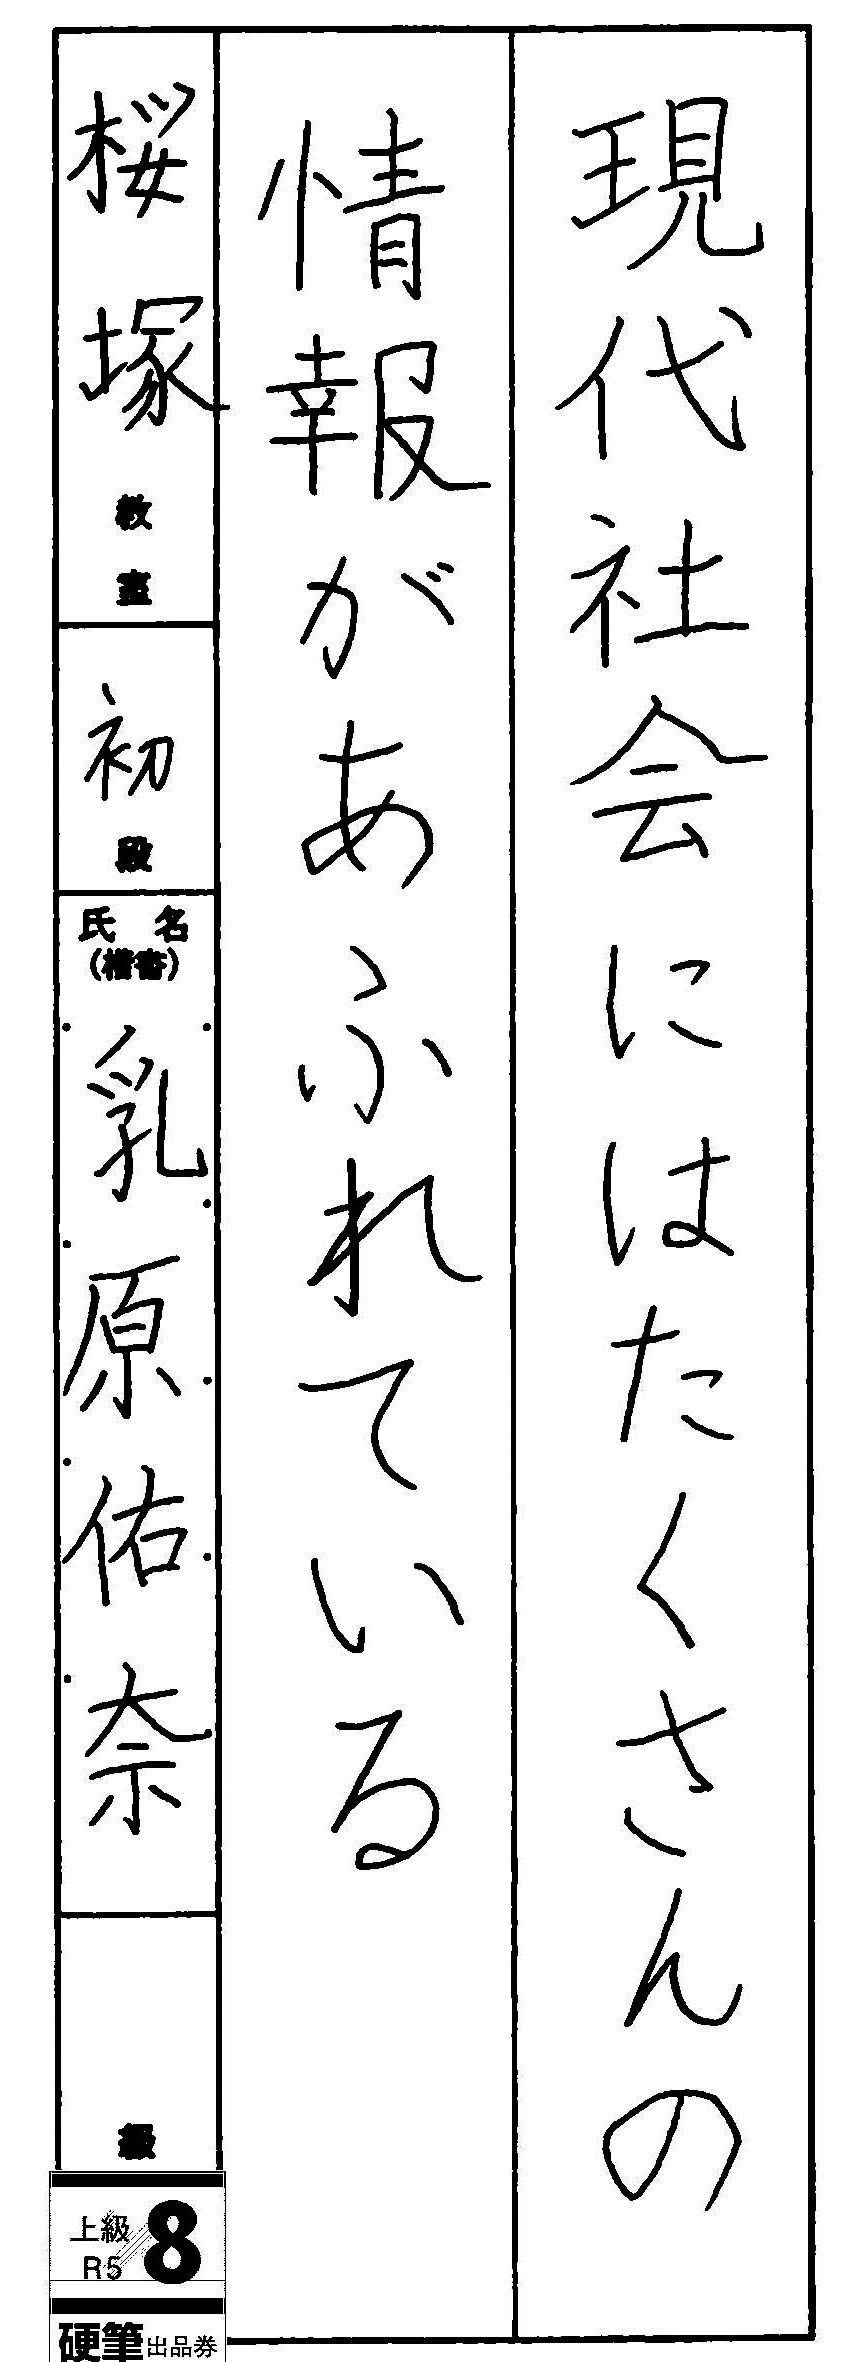 現代社会にはたくさんの
情報があふれている
桜塚教室
初段
氏名
(楷書)
乳原佑奈
級
上級
R5
8
硬筆出品券